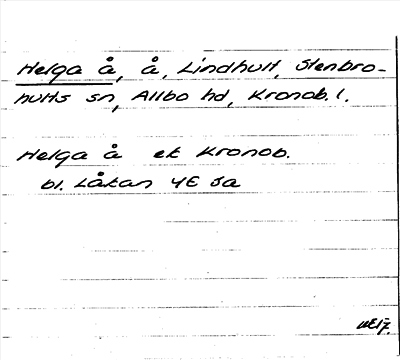 Helga å, å, Lindhult, Stenbro-
hults sn, Allbo hd, Kronob. l.
Helga å ek Kronob.
bl. Låkan 4E 5a